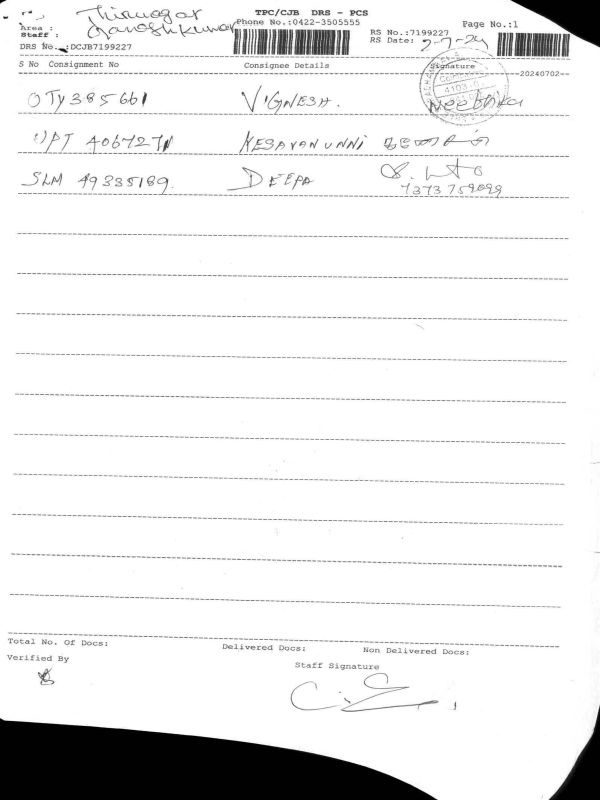 TPC/CJB DRS - PCS
Area : Thirunagar
Phone No.:0422-3505555
Page No.:1
Staff : Ganeshkumar
RS No.:7199227
RS Date: 2-7-24
DRS No.:DCJB7199227
S No Consignment No Consignee Details Signature --20240702--
OTY385661 VIGNESH.
UPT 4067271 KESAVANUNNI
SLM 49335189. DEEPA
7373759099
Total No. Of Docs: Delivered Docs: Non Delivered Docs:
Verified By Staff Signature